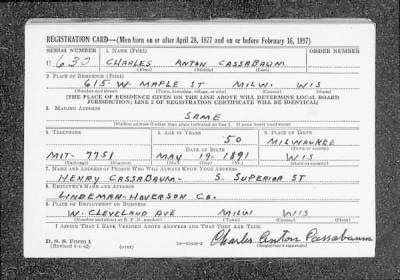 REGISTRATION CARD—(Men born on or after April 28, 1877 and on or before February 16, 1897)
SERIAL NUMBER 1. NAME (Print) ORDER NUMBER
U 630 CHARLES ANTON CASSABAUM
(First) (Middle) (Last)
2. PLACE OF RESIDENCE (Print)
615 W. MAPLE ST MILW. WIS
(Number and street) (Town, township, village, or city) (County) (State)
[THE PLACE OF RESIDENCE GIVEN ON THE LINE ABOVE WILL DETERMINE LOCAL BOARD
JURISDICTION; LINE 2 OF REGISTRATION CERTIFICATE WILL BE IDENTICAL]
3. MAILING ADDRESS
SAME
[Mailing address if other than place indicated on line 2. If same insert word same]
4. TELEPHONE 5. AGE IN YEARS 6. PLACE OF BIRTH
50 MILWAUKEE
DATE OF BIRTH (Town or county)
MIT- 7751 MAY 19- 1891 WIS
(Exchange) (Number) (Mo.) (Day) (Yr.) (State or country)
7. NAME AND ADDRESS OF PERSON WHO WILL ALWAYS KNOW YOUR ADDRESS
HENRY CASSABAUM- S. SUPERIOR ST
8. EMPLOYER'S NAME AND ADDRESS
LINDEMAN-HOVERSON CO.
9. PLACE OF EMPLOYMENT OR BUSINESS
W. CLEVELAND AVE MILW WIS
(Number and street or R. F. D. number) (Town) (County) (State)
I AFFIRM THAT I HAVE VERIFIED ABOVE ANSWERS AND THAT THEY ARE TRUE.
D. S. S. Form 1
(Revised 4-1-42) (over) Charles Anton Cassabaum